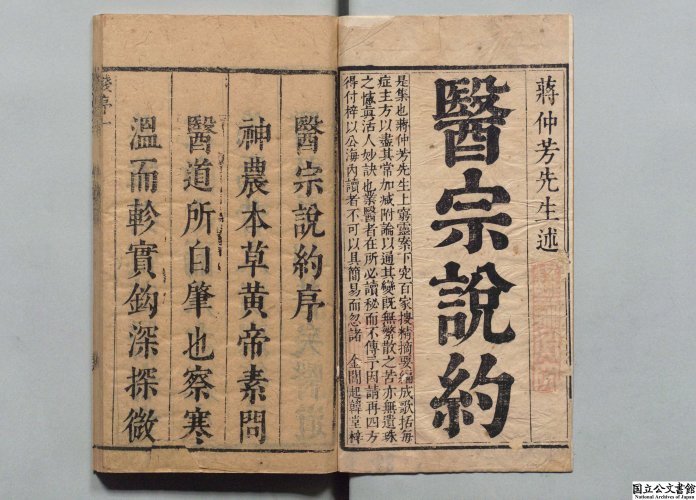 蔣仲芳先生述
醫宗說約
是集也蔣仲芳先生上窮靈素下究百家搜精摘要編成歌括每
症主方以盡其常加减附論以通其變既無繁散之苦亦無遺珠
之憾真活人妙訣也業醫者在所必讀秘而不傳予因請再四方
得付梓以公海內讀者不可以其簡易而忽諸 金閶起韓堂梓
醫宗說約序
神農本草黄帝素問
醫道所自肇也察寒
溫而軫實鈎深探微
序一
国立公文書館
National Archives of Japan